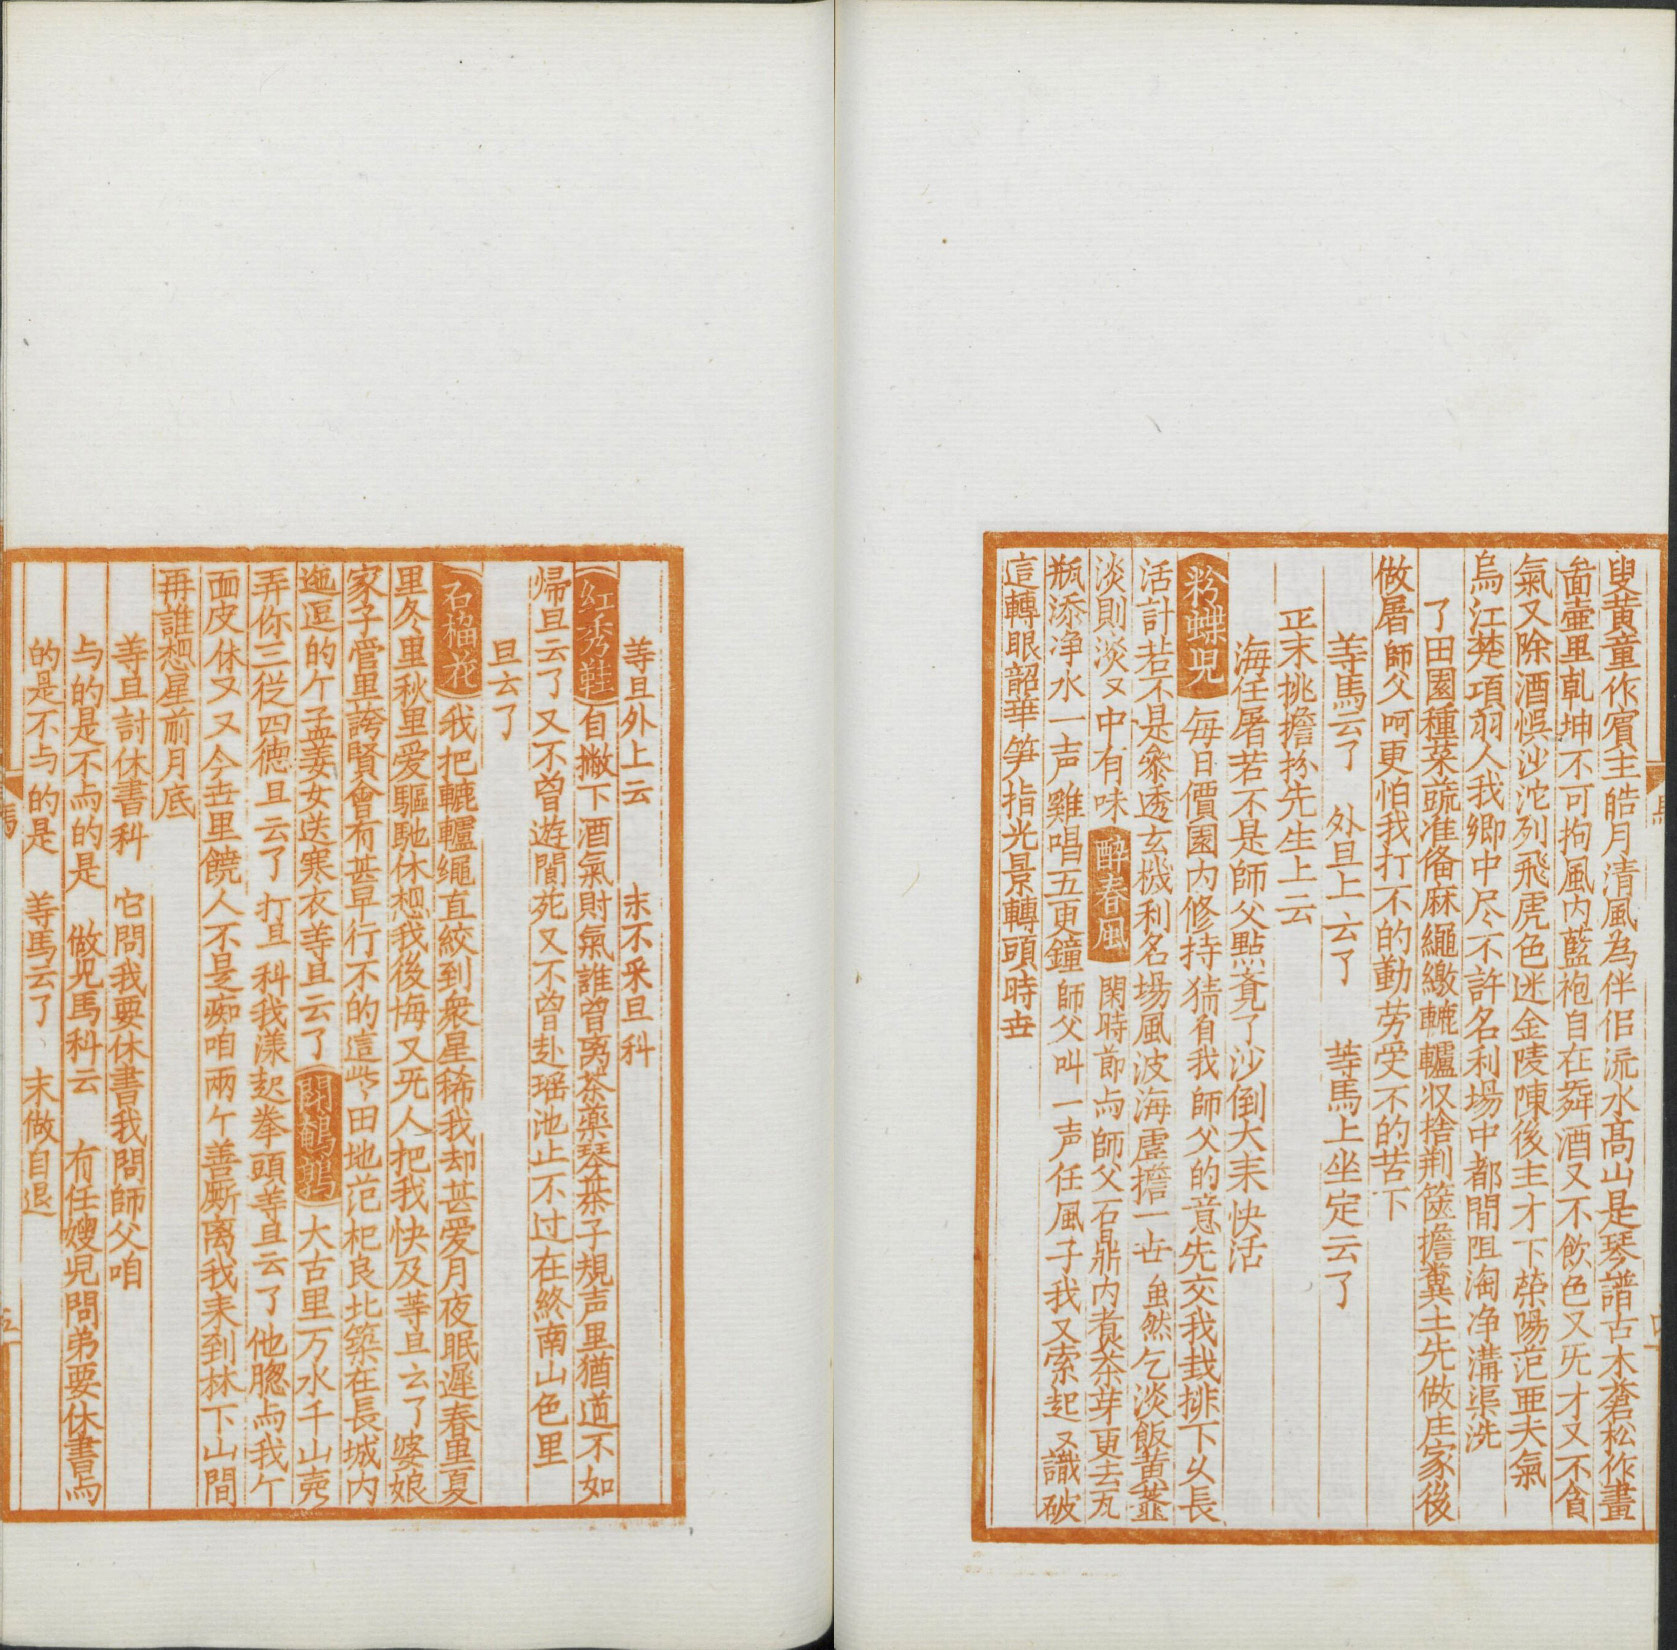 叟黄童作賓主皓月清風為伴侣流水髙山是琴譜古木蒼松作畫
啚壷里乹坤不可拘風内藍袍自在舜酒又不飲色又旡才又不貪
氣又除酒悮沙沱列飛虎色迷金陵陳後主才下荣陽范亜夫氣
烏江楚項羽人我鄉中尽不許名利場中都間阻淘净溝渠洗
了田園種菜蔬准俻麻繩繳轆轤収拾荆筬擔糞土先做庄家後
做屠師父呵更怕我打不的勤劳受不的苦下
等馬云了　外旦上云了　等馬上坐定云了
正末挑擔扮先生上云
海任屠若不是師父點覔了沙倒大耒快活
粉蝶児　每日價園内修持猜有我師父的意先交我㘽排下久長
活計若不是叅透玄機利名場風波海虚擔一丗虽然乞淡飯黄虀
淡則淡又中有味　醉春風　閑時節与師父石鼎内煑茶芽更去瓦
瓶添净水一声雞唱五更鐘師父叫一声任風子我又索起又識破
這轉眼韶華笋指光景轉頭時丗
等旦外上云　末不采旦科
紅秀鞋　自撇下酒氣財氣誰曽离茶藥琴棊子規声里猶道不如
帰旦云了又不曽遊閬苑又不曽赴瑶池止不过在終南山色里
旦云了
石榴花　我把轆轤繩直絞到衆星稀我却甚爱月夜眠遲春里夏
里冬里秋里爱驅馳休想我後悔又旡人把我快及等旦云了婆娘
家子管里誇賢會有甚早行不的這些田地范杞良北築在長城内
迤逗的个孟姜女送寒衣等旦云了　閗鵪鶉　大古里万水千山売
弄你三従四徳旦云了打旦科我漾起拳頭等旦云了他腮与我个
面皮休又又今丗里饒人不是痴咱兩个善厮离我耒到林下山間
再誰想星前月底
等旦討休書科　它問我要休書我問師父咱
与的是不与的是　做児馬科云　有任嫂児問弟要休書与
的是不与的是　等馬云了　末做自退